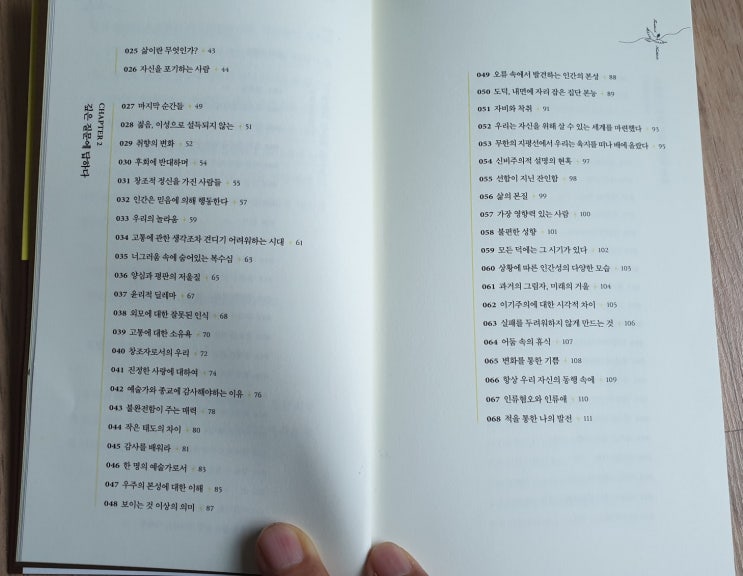 025 삶이란 무엇인가? + 43
026 자신을 포기하는 사람 + 44
CHAPTER 2
깊은 질문에 답하다
027 마지막 순간들 + 49
028 젊음, 이성으로 설득되지 않는 + 51
029 취향의 변화 + 52
030 후회에 반대하며 + 54
031 창조적 정신을 가진 사람들 + 55
032 인간은 믿음에 의해 행동한다 + 57
033 우리의 놀라움 + 59
034 고통에 관한 생각조차 견디기 어려워하는 시대 + 61
035 너그러움 속에 숨어있는 복수심 + 63
036 양심과 평판의 저울질 + 65
037 윤리적 딜레마 + 67
038 외모에 대한 잘못된 인식 + 68
039 고통에 대한 소유욕 + 70
040 창조자로서의 우리 + 72
041 진정한 사랑에 대하여 + 74
042 예술가와 종교에 감사해야하는 이유 + 76
043 불완전함이 주는 매력 + 78
044 작은 태도의 차이 + 80
045 감사를 배워라 + 81
046 한 명의 예술가로서 + 83
047 우주의 본성에 대한 이해 + 85
048 보이는 것 이상의 의미 + 87
049 오류 속에서 발견하는 인간의 본성 + 88
050 도덕, 내면에 자리 잡은 집단 본능 + 89
051 자비와 착취 + 91
052 우리는 자신을 위해 살 수 있는 세계를 마련했다 + 93
053 무한의 지평선에서 우리는 육지를 떠나 배에 올랐다 + 95
054 신비주의적 설명의 현혹 + 97
055 선함이 지닌 잔인함 + 98
056 삶의 본질 + 99
057 가장 영향력 있는 사람 + 100
058 불편한 성향 + 101
059 모든 덕에는 그 시기가 있다 + 102
060 상황에 따른 인간성의 다양한 모습 + 103
061 과거의 그림자, 미래의 거울 + 104
062 이기주의에 대한 시각적 차이 + 105
063 실패를 두려워하지 않게 만드는 것 + 106
064 어둠 속의 휴식 + 107
065 변화를 통한 기쁨 + 108
066 항상 우리 자신의 동행 속에 + 109
067 인류혐오와 인류애 + 110
068 적을 통한 나의 발전 + 111